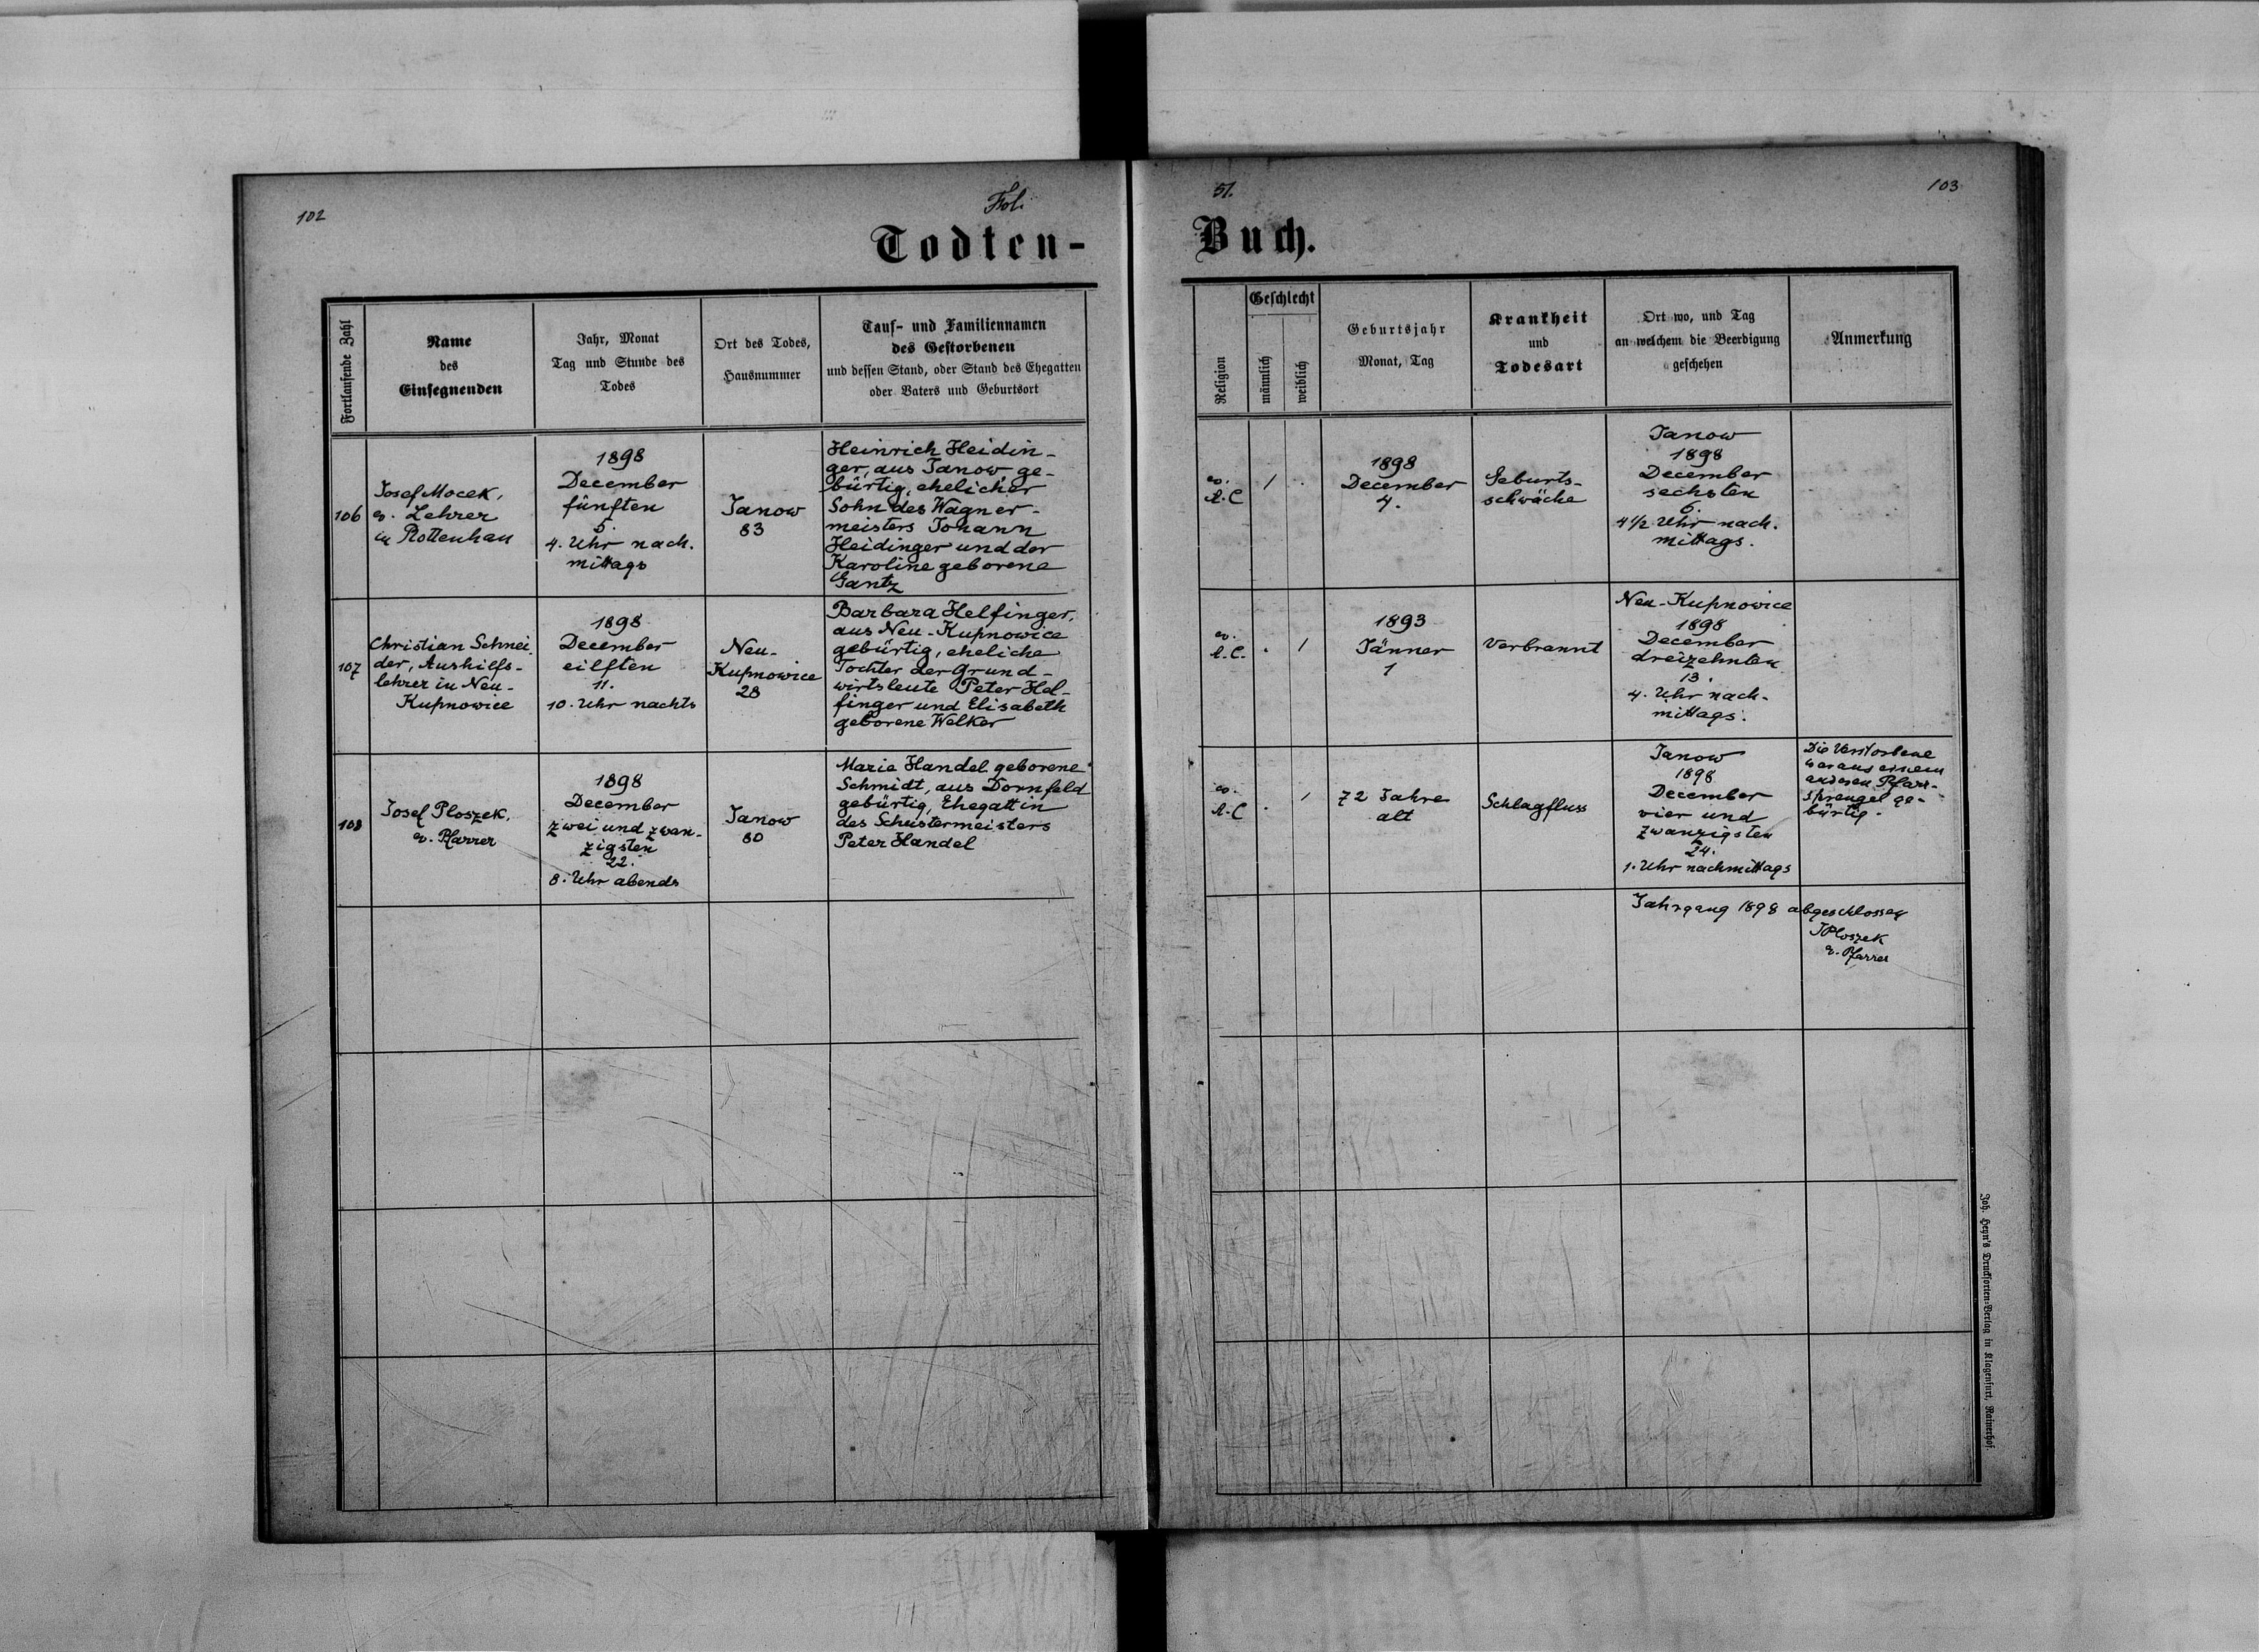 102
Fol.
Todten-
Fortlaufende Zahl
Name
des
Einsegnenden
Jahr, Monat
Tag und Stunde des
Todes
Ort des Todes,
Hausnummer
Tauf- und Familiennamen
des Gestorbenen
und dessen Stand, oder Stand des Ehegatten
oder Vaters und Geburtsort
106
Josef Mocek,
ev. Lehrer
in Rottenhan
1898
December
fünften
5.
4. Uhr nach.
mittags
Janow
83
Heinrich Heidin-
ger, aus Janow ge-
bürtig, ehelicher
Sohn des Wagner-
meisters Johann
Heidinger und der
Karoline geborene
Gantz
107
Christian Schnei.
der, Aushilfs-
lehrer in Neu-
Kupnowice
1898
December
eilften
11.
10. Uhr nachts
Neu-
Kupnowice
28
Barbara Helfinger,
aus Neu-Kupnowice
gebürtig, eheliche
Tochter der Grund-
wirtsleute Peter Hel-
finger und Elisabeth
geborene Welker
108
Josef Ploszek,
ev. Pfarrer
1898
December
zwei und zwan-
zigsten
22.
8. Uhr abends
Janow
80
Marie Handel geborene
Schmidt, aus Dornfeld
gebürtig, Ehegattin
des Schustermeisters
Peter Handel
51.
103
Buch.
Religion
Geschlecht
männlich
weiblich
Geburtsjahr
Monat, Tag
Krankheit
und
Todesart
Ort wo, und Tag
an welchem die Beerdigung
geschehen
Anmerkung
ev.
A.C
1
.
1898
December
4.
Geburts-
schwäche
Janow
1898
December
sechsten
6.
4 1/2 Uhr nach.
mittags.
ev.
A.C.
.
1
1893
Jänner
1
Verbrannt
Neu-Kupnowice
1898
December
dreizehnten
13.
4. Uhr nach-
mittags.
ev.
A.C
.
1
72 Jahre
alt
Schlagfluss
Janow
1898
December
vier und
zwanzigsten
24.
1. Uhr nachmittags
Die Verstorbene
war aus einem
anderen Pfarr-
sprengel ge-
bürtig.
Jahrgang 1898 abgeschlossen
JPloszek
ev. Pfarrer
Joh. Heyn's Drucksorten-Verlag in Klagenfurt, Rainerhof.